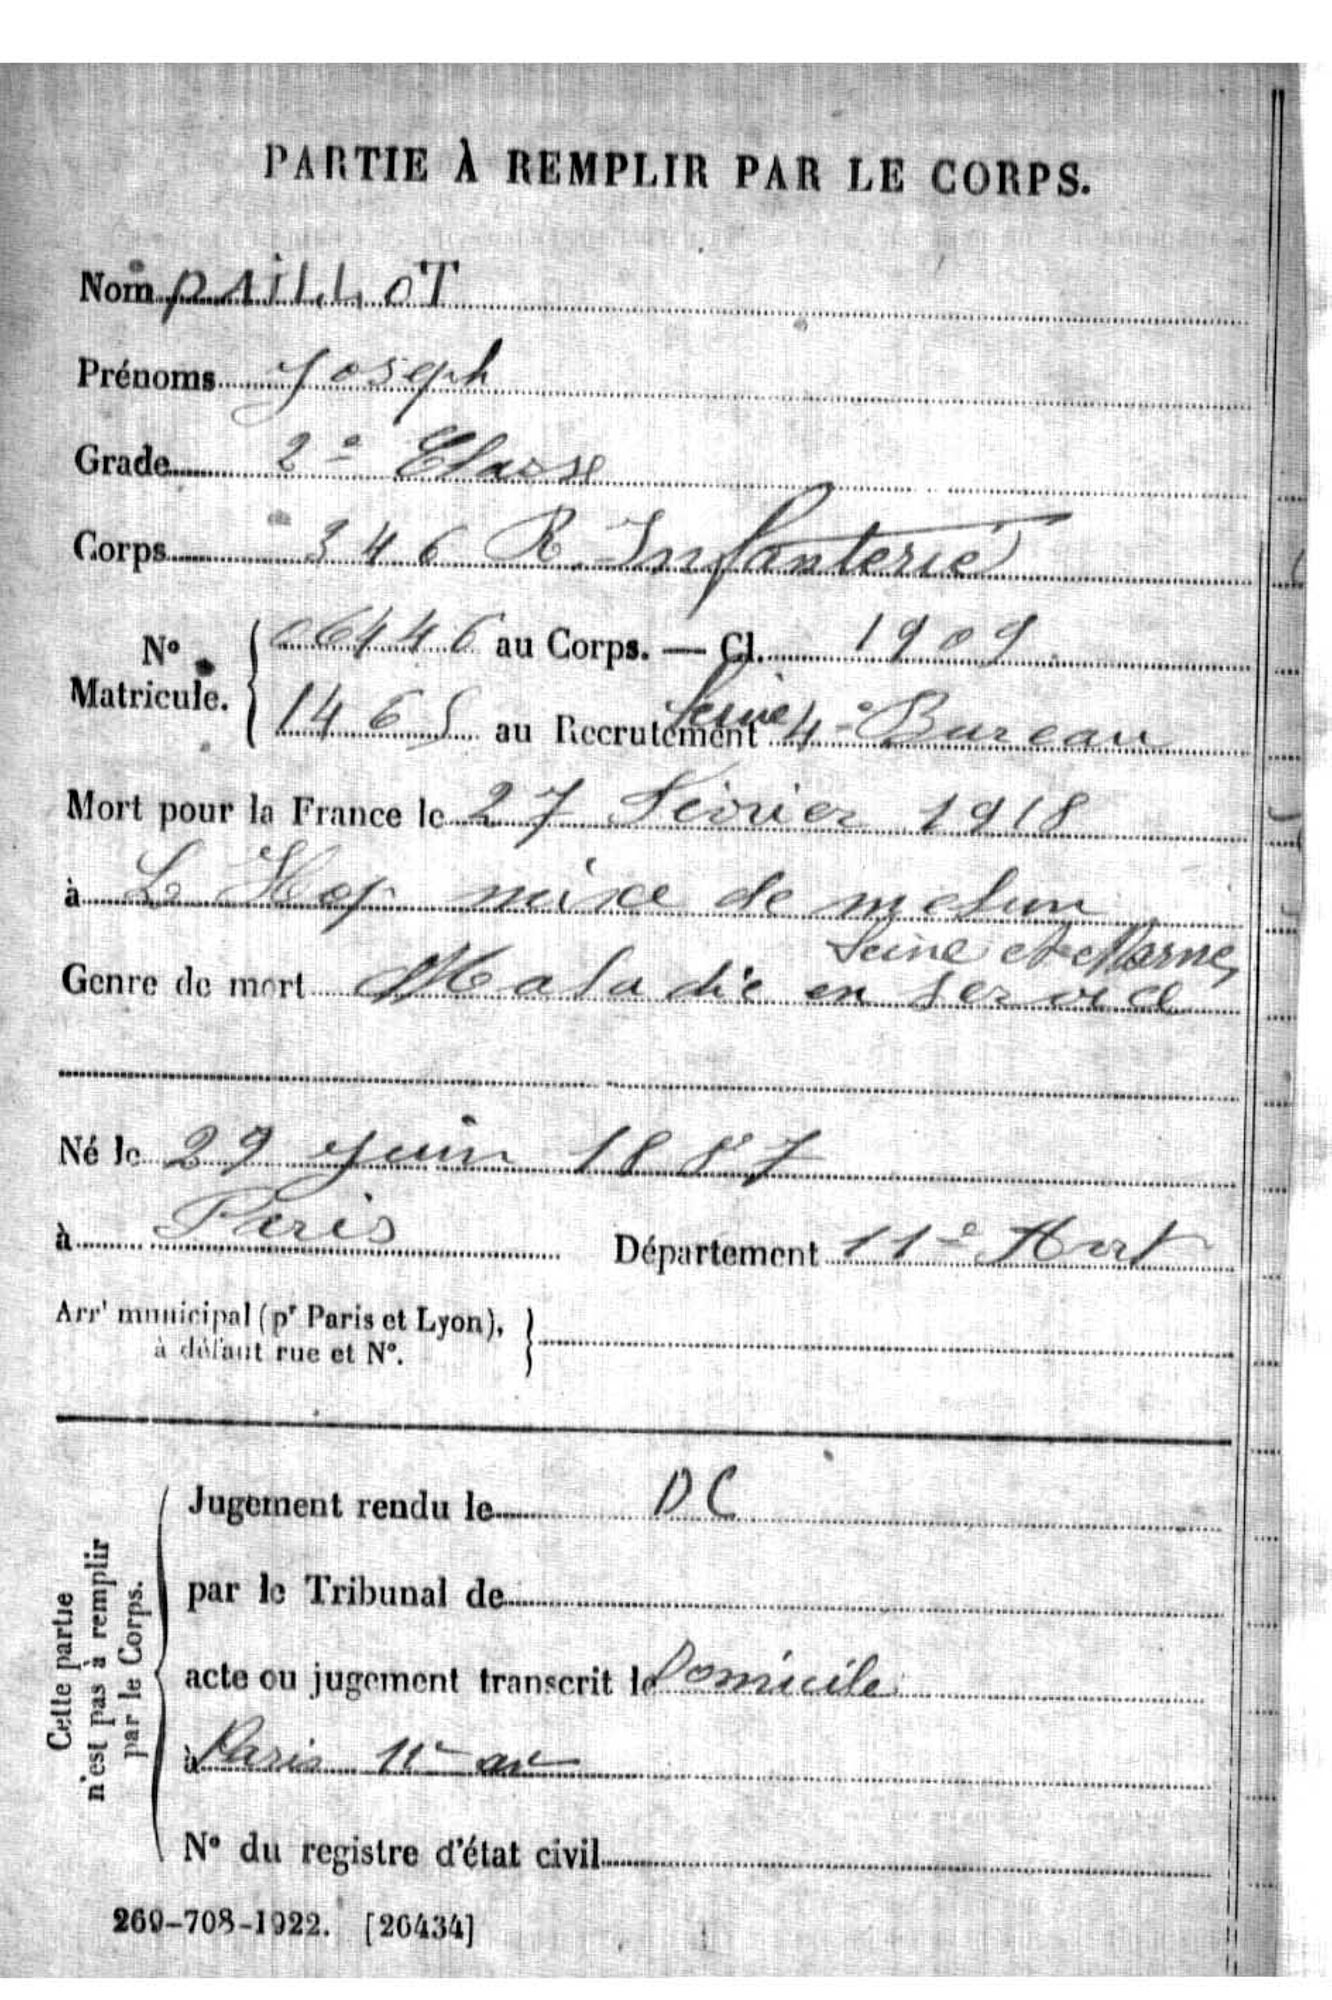 PARTIE À REMPLIR PAR LE CORPS.
Nom PAILLOT
Prénoms Joseph
Grade 2e Classe
Corps 346 R. Infanterie
No Matricule. { 06446 au Corps. — Cl. 1909
1465 au Recrutement Seine 4e Bureau
Mort pour la France le 27 Février 1918
à L Hop mixe de melun
Seine et Marne,
Genre de mort Maladie en service
Né le 29 Juin 1887
à Paris Département 11e Arrt
Arrt municipal (pr Paris et Lyon),
à défaut rue et No.
Cette partie
n'est pas à remplir
par le Corps.
Jugement rendu le DC
par le Tribunal de
acte ou jugement transcrit le Domicile
à Paris 11e arr
No du registre d'état civil
269-708-1922. [26434]